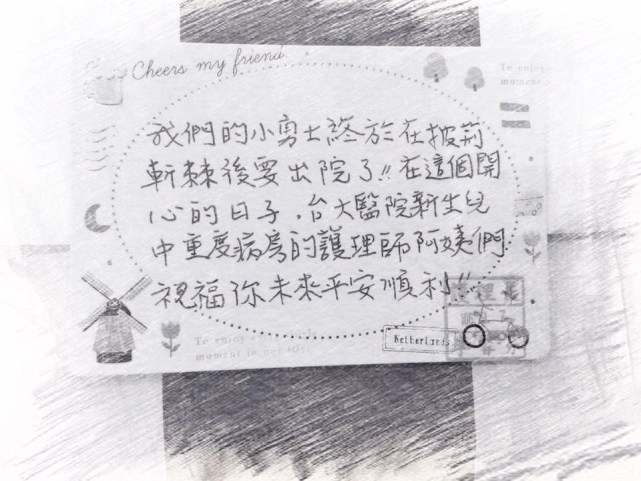 Cheers my friend
To enjoy
moment
我們的小勇士終於在披荊
斬棘後要出院了!!在這個開
心的日子,台大醫院新生兒
中重度病房的護理師阿姨們
祝福你未來平安順利!!
To enjoy
moment
Netherlands
護理長